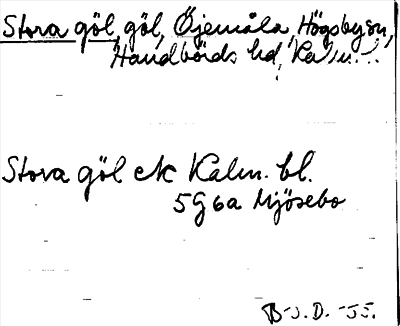 Stora göl, göl, Öjemåla, Högsby sn,
Handbörds hd, Kalm. l.
Stora göl ek Kalm. bl.
5G6a Mjösebo
B-J. D. -55.